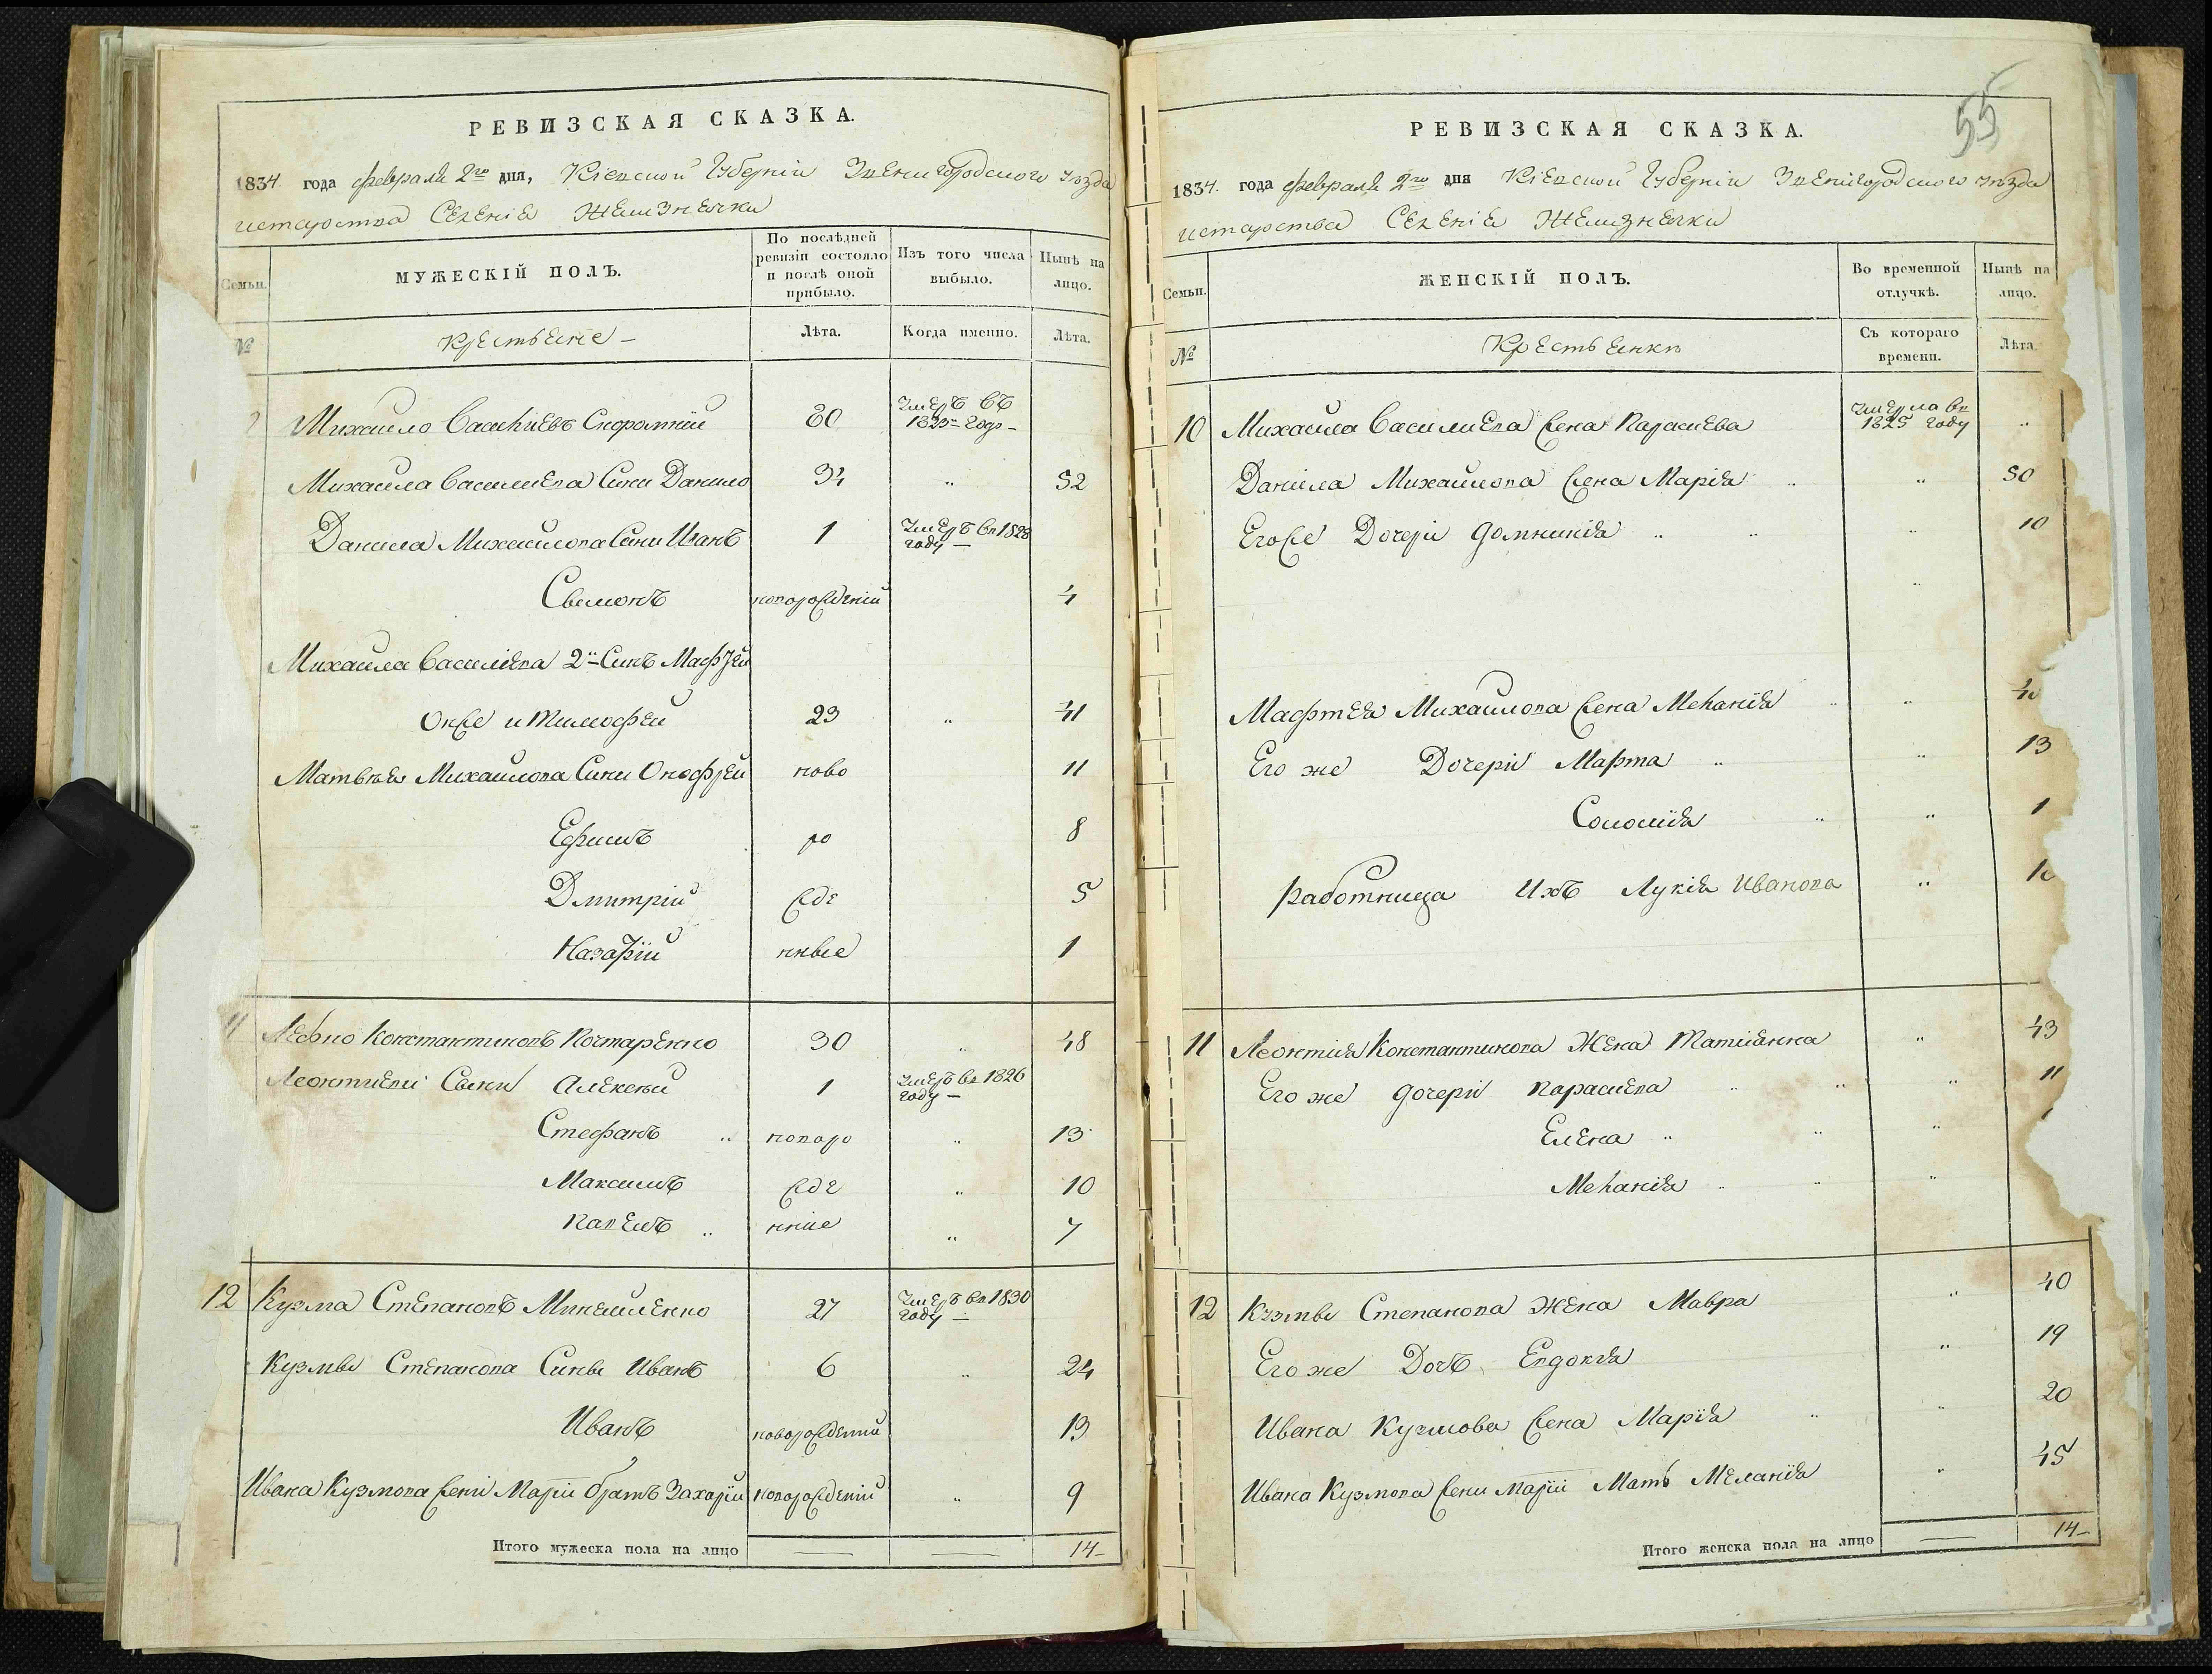 РЕВИЗСКАЯ СКАЗКА.
1834 года февраля 2го дня, Кіевской Губерніи Звенигородского уѣзда
истароства Селенія Желизнячки
Семьи.
МУЖЕСКІЙ ПОЛЪ.
По послѣдней ревизіи состояло и послѣ оной прибыло.
Изъ того числа выбыло.
Нынѣ на лицо.
№
Крестьяне –
Лѣта.
Когда именно.
Лѣта.
Михайло Васильевъ 80 Умеръ въ
Михайла Василиева Сини Данило 34 " 52
Данила Михайлова Сини Иванъ 1 Умеръ в 1828 году –
Свемонъ новорожденій 4
Михайла Василіева 2й Синъ
Онже и Тимофей 23 " 41
Матвѣя Михайлова Сини 11
ново
Ефимъ ро 8
Дмитрій жде 5
Назарій нные 1
11 Константиновъ Кочтаренко 30 " 48
Леонтиеви Сыни Алексѣй 1 Умеръ в 1826 году –
Стефанъ " новоро " 13
Максимъ жде " 10
Павелъ " нніе " 7
12 Кузма Степановъ 27 Умеръ в 1830 году –
Кузмы Степанова Сины Иванъ 6 " 24
Иванъ новорожденій 13
Ивана Кузмова жени Маріи братъ Захарій новорожденій " 9
Итого мужеска пола на лицо 14–
55
РЕВИЗСКАЯ СКАЗКА.
1834. года февраля 2го дня Кіевской Губерніи Звенигородского уѣзда
истароства Селенія Желизнячки
Семьи.
ЖЕНСКІЙ ПОЛЪ.
Во временной отлучкѣ.
Нынѣ на лицо.
№
Крестьянки
Съ котораго времени.
Лѣта.
10 Михайла Василиева жена Парасиева Умерла в 1825 году "
Даніила Михайлова жена Марія " " 50
Егоже Дочери Домникія " " " 10
Мафтея Михайлова жена Меланія " "
Его же Дочери Марта " " 13
Соломія " " 1
Работница Ихъ Лукія Иванова "
11 Леонтія Константинова Жена Татіянна " 43
Его же дочери Парасиева " " " 11
Елена " " "
Меланія " " "
12 Кузмы Степанова Жена Мавра " 40
Его же Дочъ Евдокія " 19
Ивана Кузмова жена Марія " " 20
Ивана Кузмова жени Маріи Мать Меланія " 45
Итого женска пола на лицо 14–